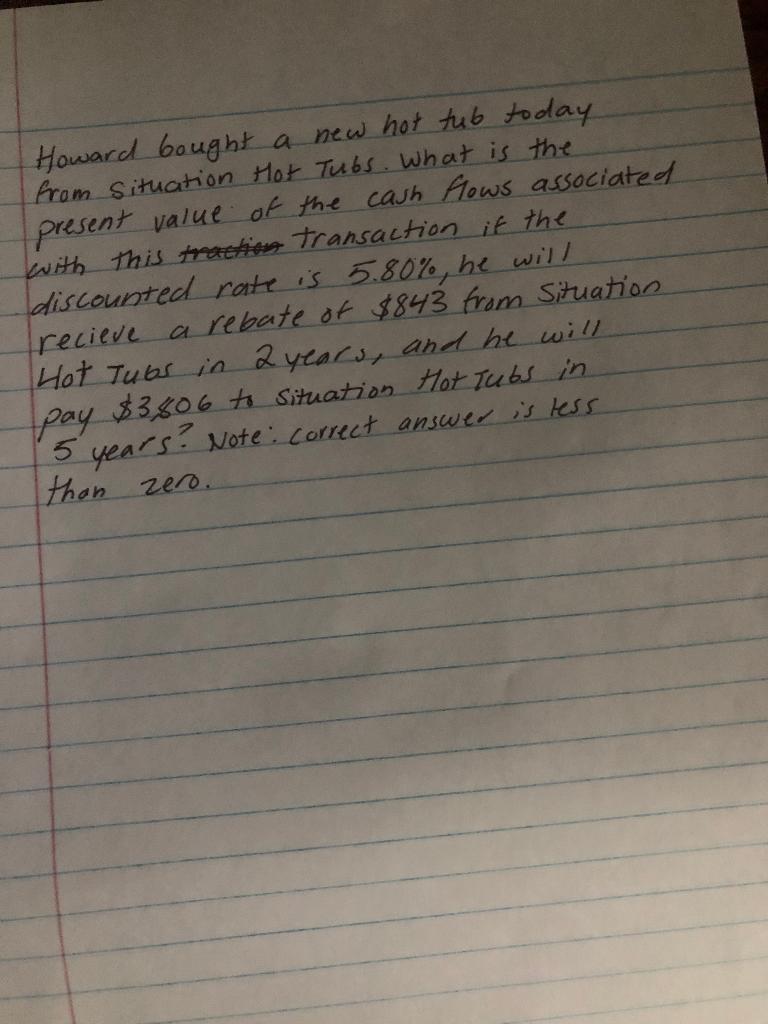 Howard bought a new hot tub today
from Situation Hot Tubs. What is the
present value of the cash flows associated
with this traction transaction if the
discounted rate is 5.80%, he will
recieve a rebate of $843 from Situation
Hot Tubs in 2 years, and he will
pay $3,806 to Situation Hot Tubs in
5 years? Note: correct answer is less
than zero.